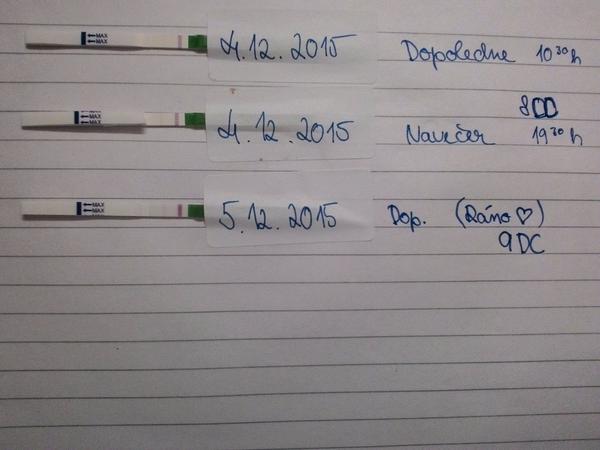 MAX
MAX
4.12.2015 Dopoledne 10³⁰h
8DC
MAX
MAX
4.12.2015 Navečer 19³⁰h
MAX
MAX
5.12.2015 Dop. (Ráno ♡)
9DC